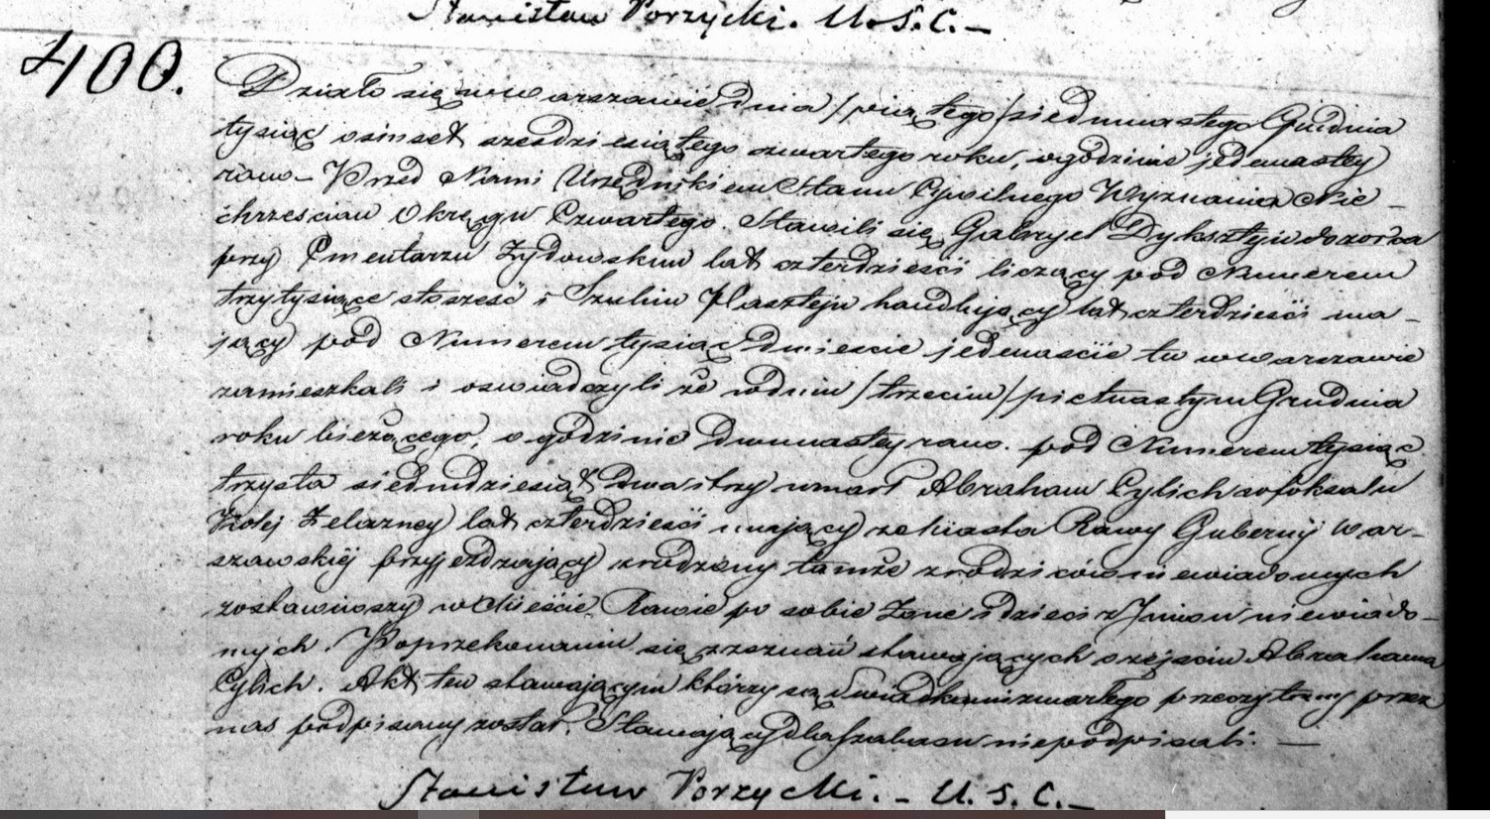 Stanisław Porzycki. U. S. C. –
400.
Działo się w Warszawie dnia /piątego/ siedmnastego Grudnia
tysiąc ośmset sześdziesiątego czwartego roku, o godzinie jedenastey
rano – Przed Nami Urzędnikiem Stanu Cywilnego Wyznania Nie-
chrzescian Okręgu Czwartego. Stawili się Gabryel Dyksztejn dozorca
przy Cmentarzu Żydowskim lat czterdzieści liczący pod Numerem
trzy tysiące sto sześć i Szulim Plasztejn handlujący lat czterdzieści ma-
jący pod Numerem tysiąc dwieście jedenaście tu w Warszawie
zamieszkali i oswiadczyli że w dniu /trzecim/ pietnastym Grudnia
roku bieżącego, o godzinie dwunastey rano. pod Numerem tysiąc
trzysta siedmdziesiąt dwa i trzy umarł Abraham Cylich w foksalu
Kolej Żelazney lat czterdzieści mający z Miasta Rawy Gubernij War-
szawskiej przyjezdzający zrodzony tamże z rodziców niewiadomych
zostawiwszy w Mieście Rawie po sobie Żone i dzieci z Jmion niewiado-
mych. Po przekonaniu się z zeznań stawających o zejściu Abrahama
Cylich. Akt ten stawającym którzy są Świadkami zmarłego przeczytany przez
nas podpisany został. Stawający dla szabasu niepodpisali. –
Stanisław Porzycki. – U. S. C. –